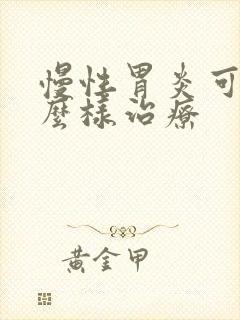 慢性胃炎可
麼樣治療
黃金甲